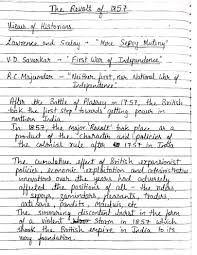 The Revolt of 1857
Views of Historians
Lawrence and Seeley - "Mere Sepoy Mutiny"
V.D Savarkar - "First War of Independence"
R.C Majumdar - "Neither first, nor National War of
Independence"
After the Battle of Plassey in 1757, the British
took the first step towards getting power in
northern India.
In 1857, the major 'Revolt' took place as a
product of the character and policies of
the colonial rule after 1757 in India
The cumulative effect of British expansionist
policies, economic exploitation and administrative
innovations over the years had adversely
affected the positions of all - the rulers
, sepoys, zamindars, peasants, traders,
artisans, Pandits, Maulvis, etc.
The simmering discontent burst in the form
of a violent storm in 1857 which
shook the British empire in India to its
very foundation.